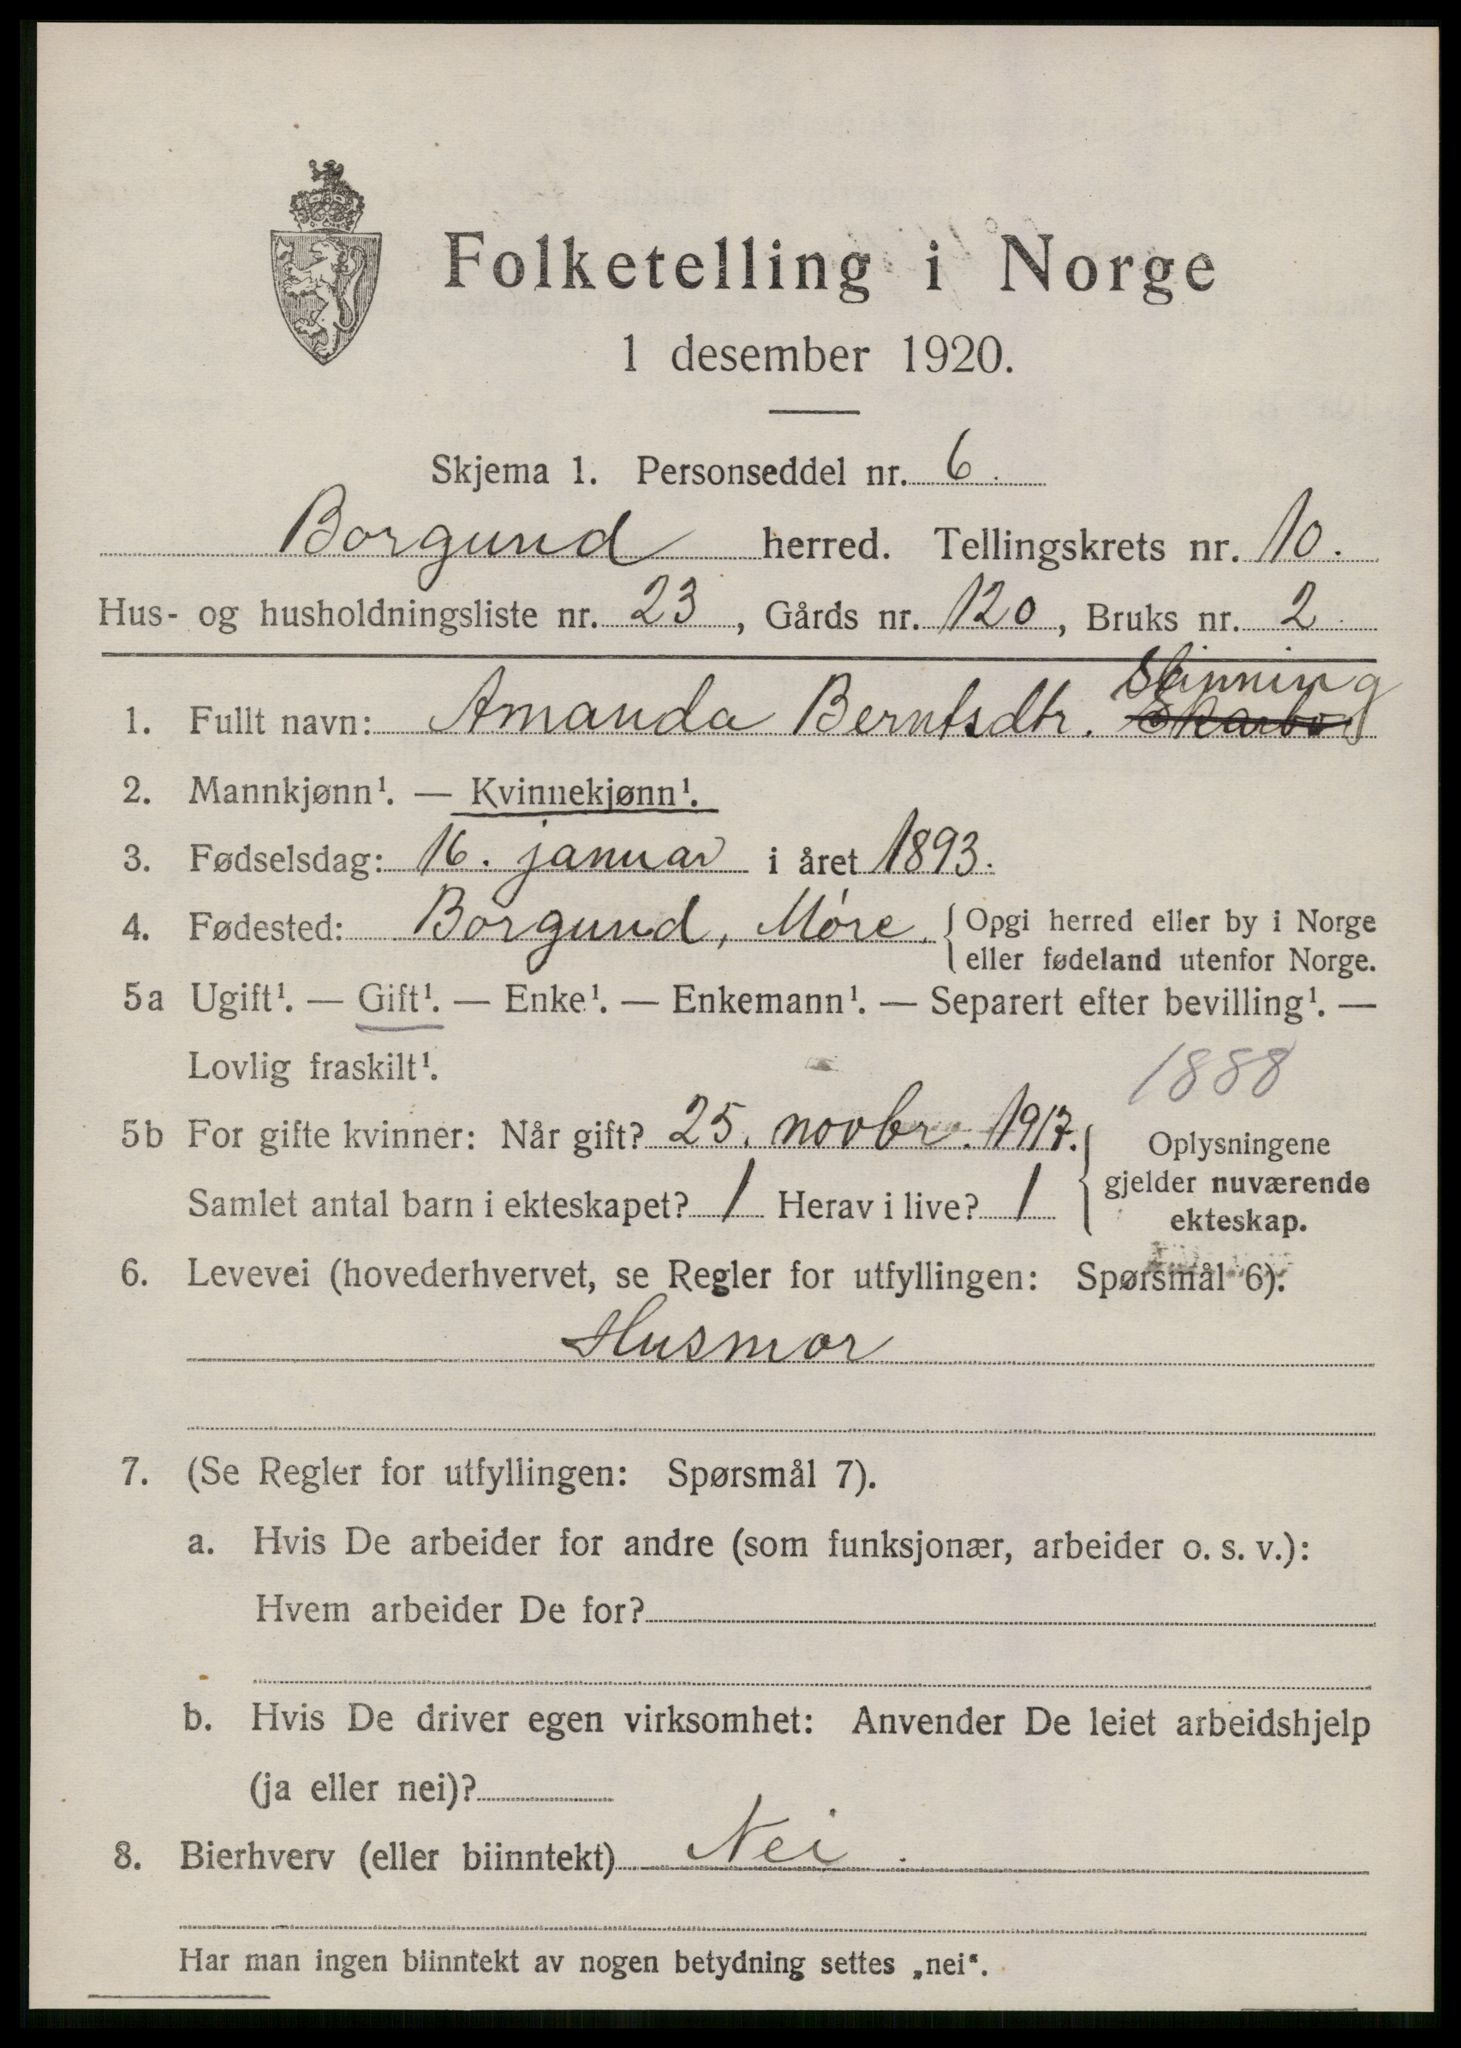 Folketelling i Norge
1 desember 1920.
Skjema 1. Personseddel nr. 6.
Borgund herred. Tellingskrets nr. 10.
Hus- og husholdningsliste nr. 23, Gårds nr. 120, Bruks nr. 2
Slinning
1. Fullt navn: Amanda Berntsdtr. Skarbø
2. Mannkjønn¹. — Kvinnekjønn¹.
3. Fødselsdag: 16. januar i året 1893.
4. Fødested: Borgund, Møre. { Opgi herred eller by i Norge
eller fødeland utenfor Norge.
5a Ugift¹. — Gift¹. — Enke¹. — Enkemann¹. — Separert efter bevilling¹. —
Lovlig fraskilt¹.
1888
5b For gifte kvinner: Når gift? 25. novbr. 1917.
Samlet antal barn i ekteskapet? 1 Herav i live? 1
{ Oplysningene
gjelder nuværende
ekteskap.
6. Levevei (hovederhvervet, se Regler for utfyllingen: Spørsmål 6).
Husmor
7. (Se Regler for utfyllingen: Spørsmål 7).
a. Hvis De arbeider for andre (som funksjonær, arbeider o. s. v.):
Hvem arbeider De for?
b. Hvis De driver egen virksomhet: Anvender De leiet arbeidshjelp
(ja eller nei)?
8. Bierhverv (eller biinntekt) Nei.
Har man ingen biinntekt av nogen betydning settes „nei“.